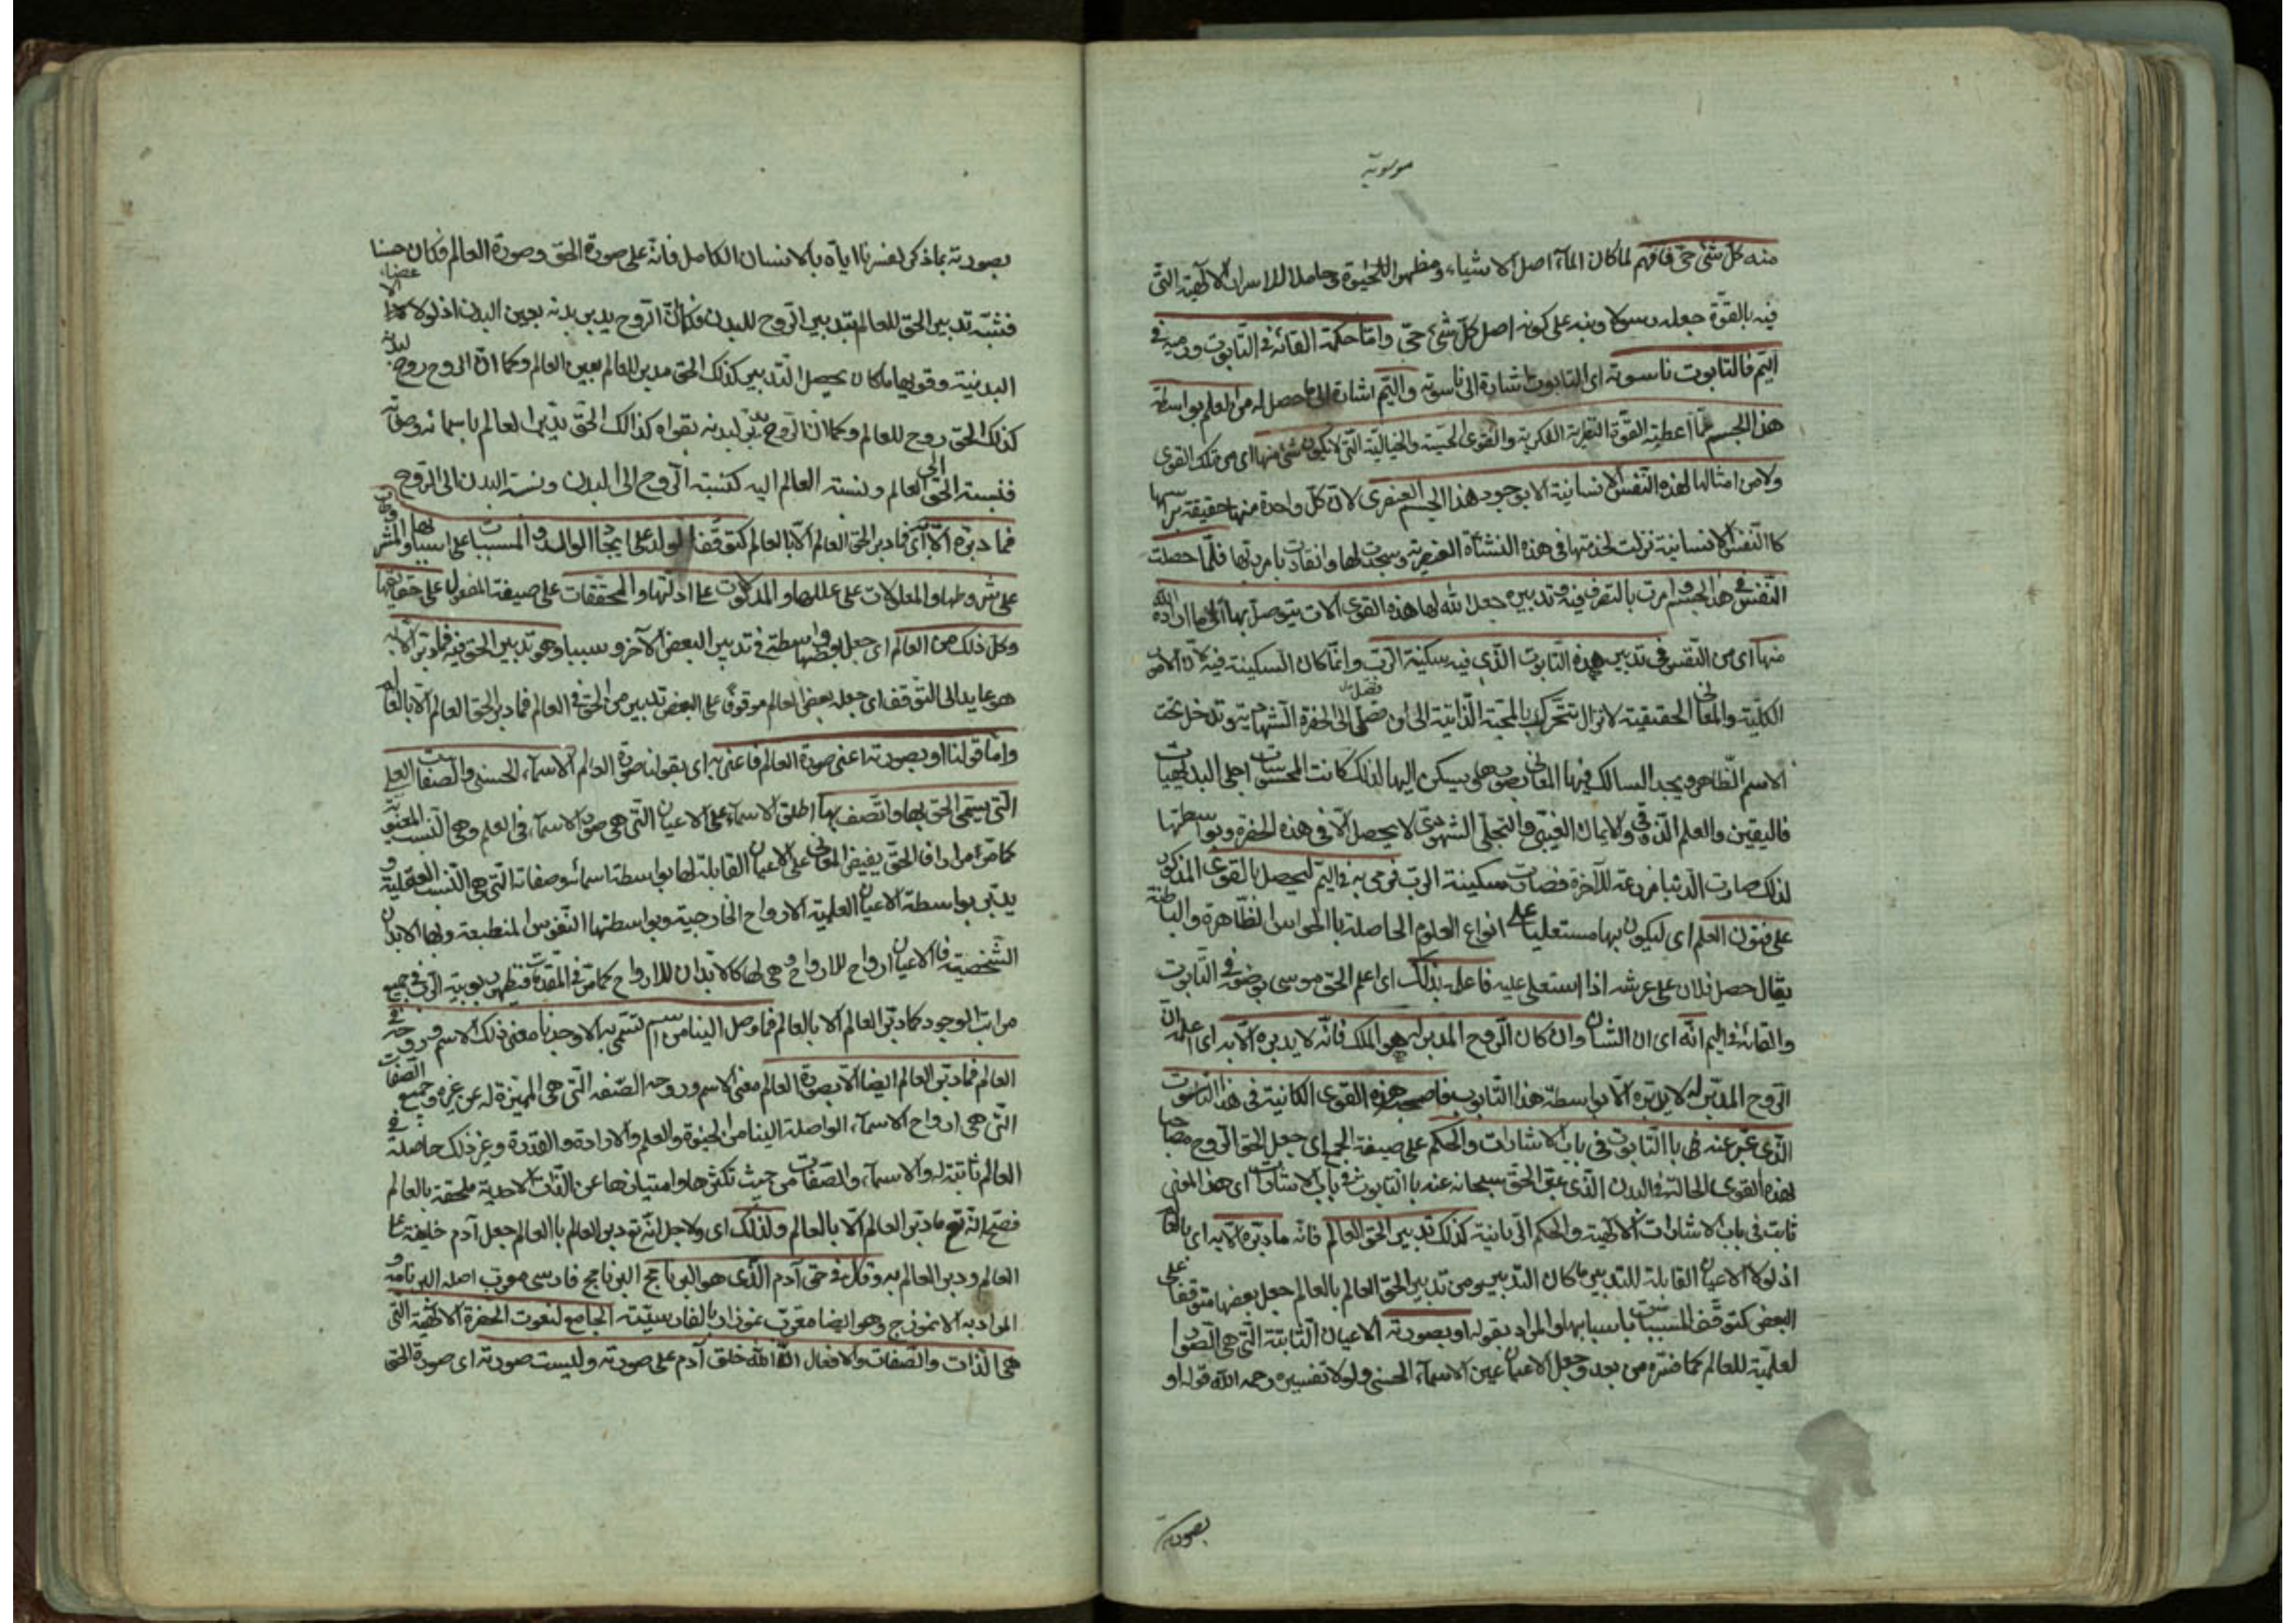 موسوية
منه كل شئ حى فافهم لما كان المآء اصل الاشياء ومظهرا للحيوة وحاملا للاسرار الالهية التى
فيه بالقوة جعله رسولا ونبه على كونه اصل كل شئ حى واما حكمة القائه فى التابوت ورميه فى
اليم فالتابوت ناسوته اى التابوت اشارة الى ناسوته واليم اشارة الى ما حصل له من العلم بواسطة
هذا الجسم مما اعطته القوة النظرية الفكرية والقوى الحسية والخيالية التى لا يكون شئ منها اى من تلك القوى
ولا من امثالها لهذه النفس الانسانية الا بوجود هذا الجسم العنصرى لان كل واحدة منها حقيقة براسها
كا النفس الانسانية نزلت لخدمتها فى هذه النشأة العنصرية وسجدت لها وانقادت بامر ربها فلما حصلت
النفس فى هذا الجسم وامرت بالتصرف فيه وتدبيره جعل الله لها هذه القوى آلات يتوصل بها الى ما اراده الله
منها اى من النفس فى تدبير هذه التابوت الذى فيه سكينة الرب وانما كان السكينة فيه لان الامور
الكلية والمعانى الحقيقية لا تزال تتحرك بالمحبة الذاتية الى ان تصل الى الحضرة الشهادية وتدخل تحت
الاسم الظاهر ويجد السالك فيها المعانى بصورها يسكن اليها لذلك كانت المحسوسات اجلى البديهيات
فاليقين والعلم الذوقى والايمان الغيبى والتجلى الشهودى لا يحصل الا فى هذه الحضرة وبواسطتها
لذلك صارت الدنيا مزرعة للآخرة فصارت سكينة الرب فرمى به فى اليم ليحصل بالقوى المذكور
على فنون العلم اى ليكون بها مستعليا على انواع العلوم الحاصلة با الحواس الظاهرة والباطنة
يقال حصل فلان على عرشه اذا استعلى عليه فاعلمه بذلك اى اعلم الحق موسى بوضعه فى التابوت
والقائه فى اليم انه اى ان الشان وان كان الروح المدبر له هو الملك فانه لا يدبره الا به اى اعلمه ان
الروح المدبر له لا يدبره الا بواسطة هذا التابوت فاصحبه هذه القوى الكائنة فى هذا الناسوت
الذى عبر عنه با التابوت فى باب الاشارات والحكم على صيغة الجمع اى جعل الحق الروح مصاحبا
لهذه القوى الحالة فى البدن الذى عبر الحق سبحانه عنه با التابوت فى باب الاشارات اى هذا المعنى
ثابت فى باب الاشارات الالهية والحكم الربانية كذلك تدبير الحق العالم فانه ما دبره الا به اى بالعالم
اذ لولا الاعيان القابلة للتدبير ما كان التدبير ومن تدبير الحق العالم بالعالم جعل بعضها متوقفا على
البعض كتوقف المسببات باسبابها والمراد بقوله او بصورته الاعيان الثابتة التى هى الصور ا
لعلمية للعالم كما فسره من بعد وجعل الاعيان عين الاسمآء الحسنى ولولا تفسيره رحمه الله قوله او
بصورته
بصورته بما ذكر لفسرنا اياه بالانسان الكامل فانه على صورة الحق وصورة العالم فكان حسنا
فشبه تدبير الحق للعالم بتدبير الروح للبدن فكما ان الروح يدبر بدنه بعين البدن اذ لولا الاعضاء
البدنية وقويها ما كان يحصل التدبير كذلك الحق مدبر للعالم بعين العالم وكما ان الروح روح لبدنه
كذلك الحق روح للعالم وكما ان الروح يدبر لبدنه بقواه كذالك الحق يدبر العالم باسمائه وصفاته
فنسبة الحق الى العالم ونسبة العالم اليه كنسبة الروح الى البدن ونسبة البدن الى الروح
فما دبره الا به اى فما دبر الحق العالم الا بالعالم كتوقف الولد على ايجاد الوالد والمسببات على اسبابها والمشروطات
على شروطها والمعلولات على عللها والمدلولات على ادلتها والمحققات على صيغة المفعول على حقائقها
وكل ذلك من العالم اى جعل بعضها واسطة فى تدبير البعض الآخر وسببا وهو تدبير الحق فيه فما دبره الا به
هو عايد الى التوقف اى جعل بعض العالم موقوفا على البعض تدبير من الحق فى العالم فما دبر الحق العالم الا بالعالم
واما قولنا او بصورته اعنى صورة العالم فاعنى به اى بقولنا صورة العالم الاسمآء الحسنى والصفات العلى
التى يسمى الحق بها واتصف بها اطلق الاسمآء على الاعيان التى هى صور الاسمآء فى العلم وهى النسب المعنوية
كما مر مرارا فالحق يفيض المعانى على الاعيان القابلة لها بواسطة اسمائه وصفاته التى هى النسب العقلية و
يدبر بواسطة الاعيان العلمية الارواح الخارجية وبواسطتها النفوس المنطبعة وبها الابدان
الشخصية فا الاعيان ارواح للارواح وهى لها كالابدان للارواح كما مر فى المقدمات فتظهر ربوبية الرب فى جميع
مراتب الوجود كما دبر العالم الا بالعالم فما وصل الينا من اسم تسمى به الا وجدنا معنى ذلك الاسم وروحه فى
العالم فما دبر العالم ايضا الا بصورة العالم معنى الاسم وروحه الصفة التى هى المميزة له عن غيره وجميع الصفات
التى هى ارواح الاسمآء الواصلة الينا من الحيوة والعلم والارادة والقدرة وغير ذلك حاصلة فى
العالم ثابتة له والاسمآء والصفات من حيث تكثرها وامتيازها عن الذات الاحدية ملحقة بالعالم
فصح انه تع ما دبر العالم الا بالعالم ولذلك اى ولاجل انه تع دبر العالم با العالم جعل آدم خليفة على
العالم ودبر العالم به وقال فى حق آدم الذى هو البرنامج البرنامج فارسى معرب اصله البرنامه و
المراد به الانموذج وهو ايضا معرب نموذار بالفارسية الجامع لنعوت الحضرة الالهية التى
هى الذات والصفات والافعال ان الله خلق آدم على صورته وليست صورته اى صورة الحق